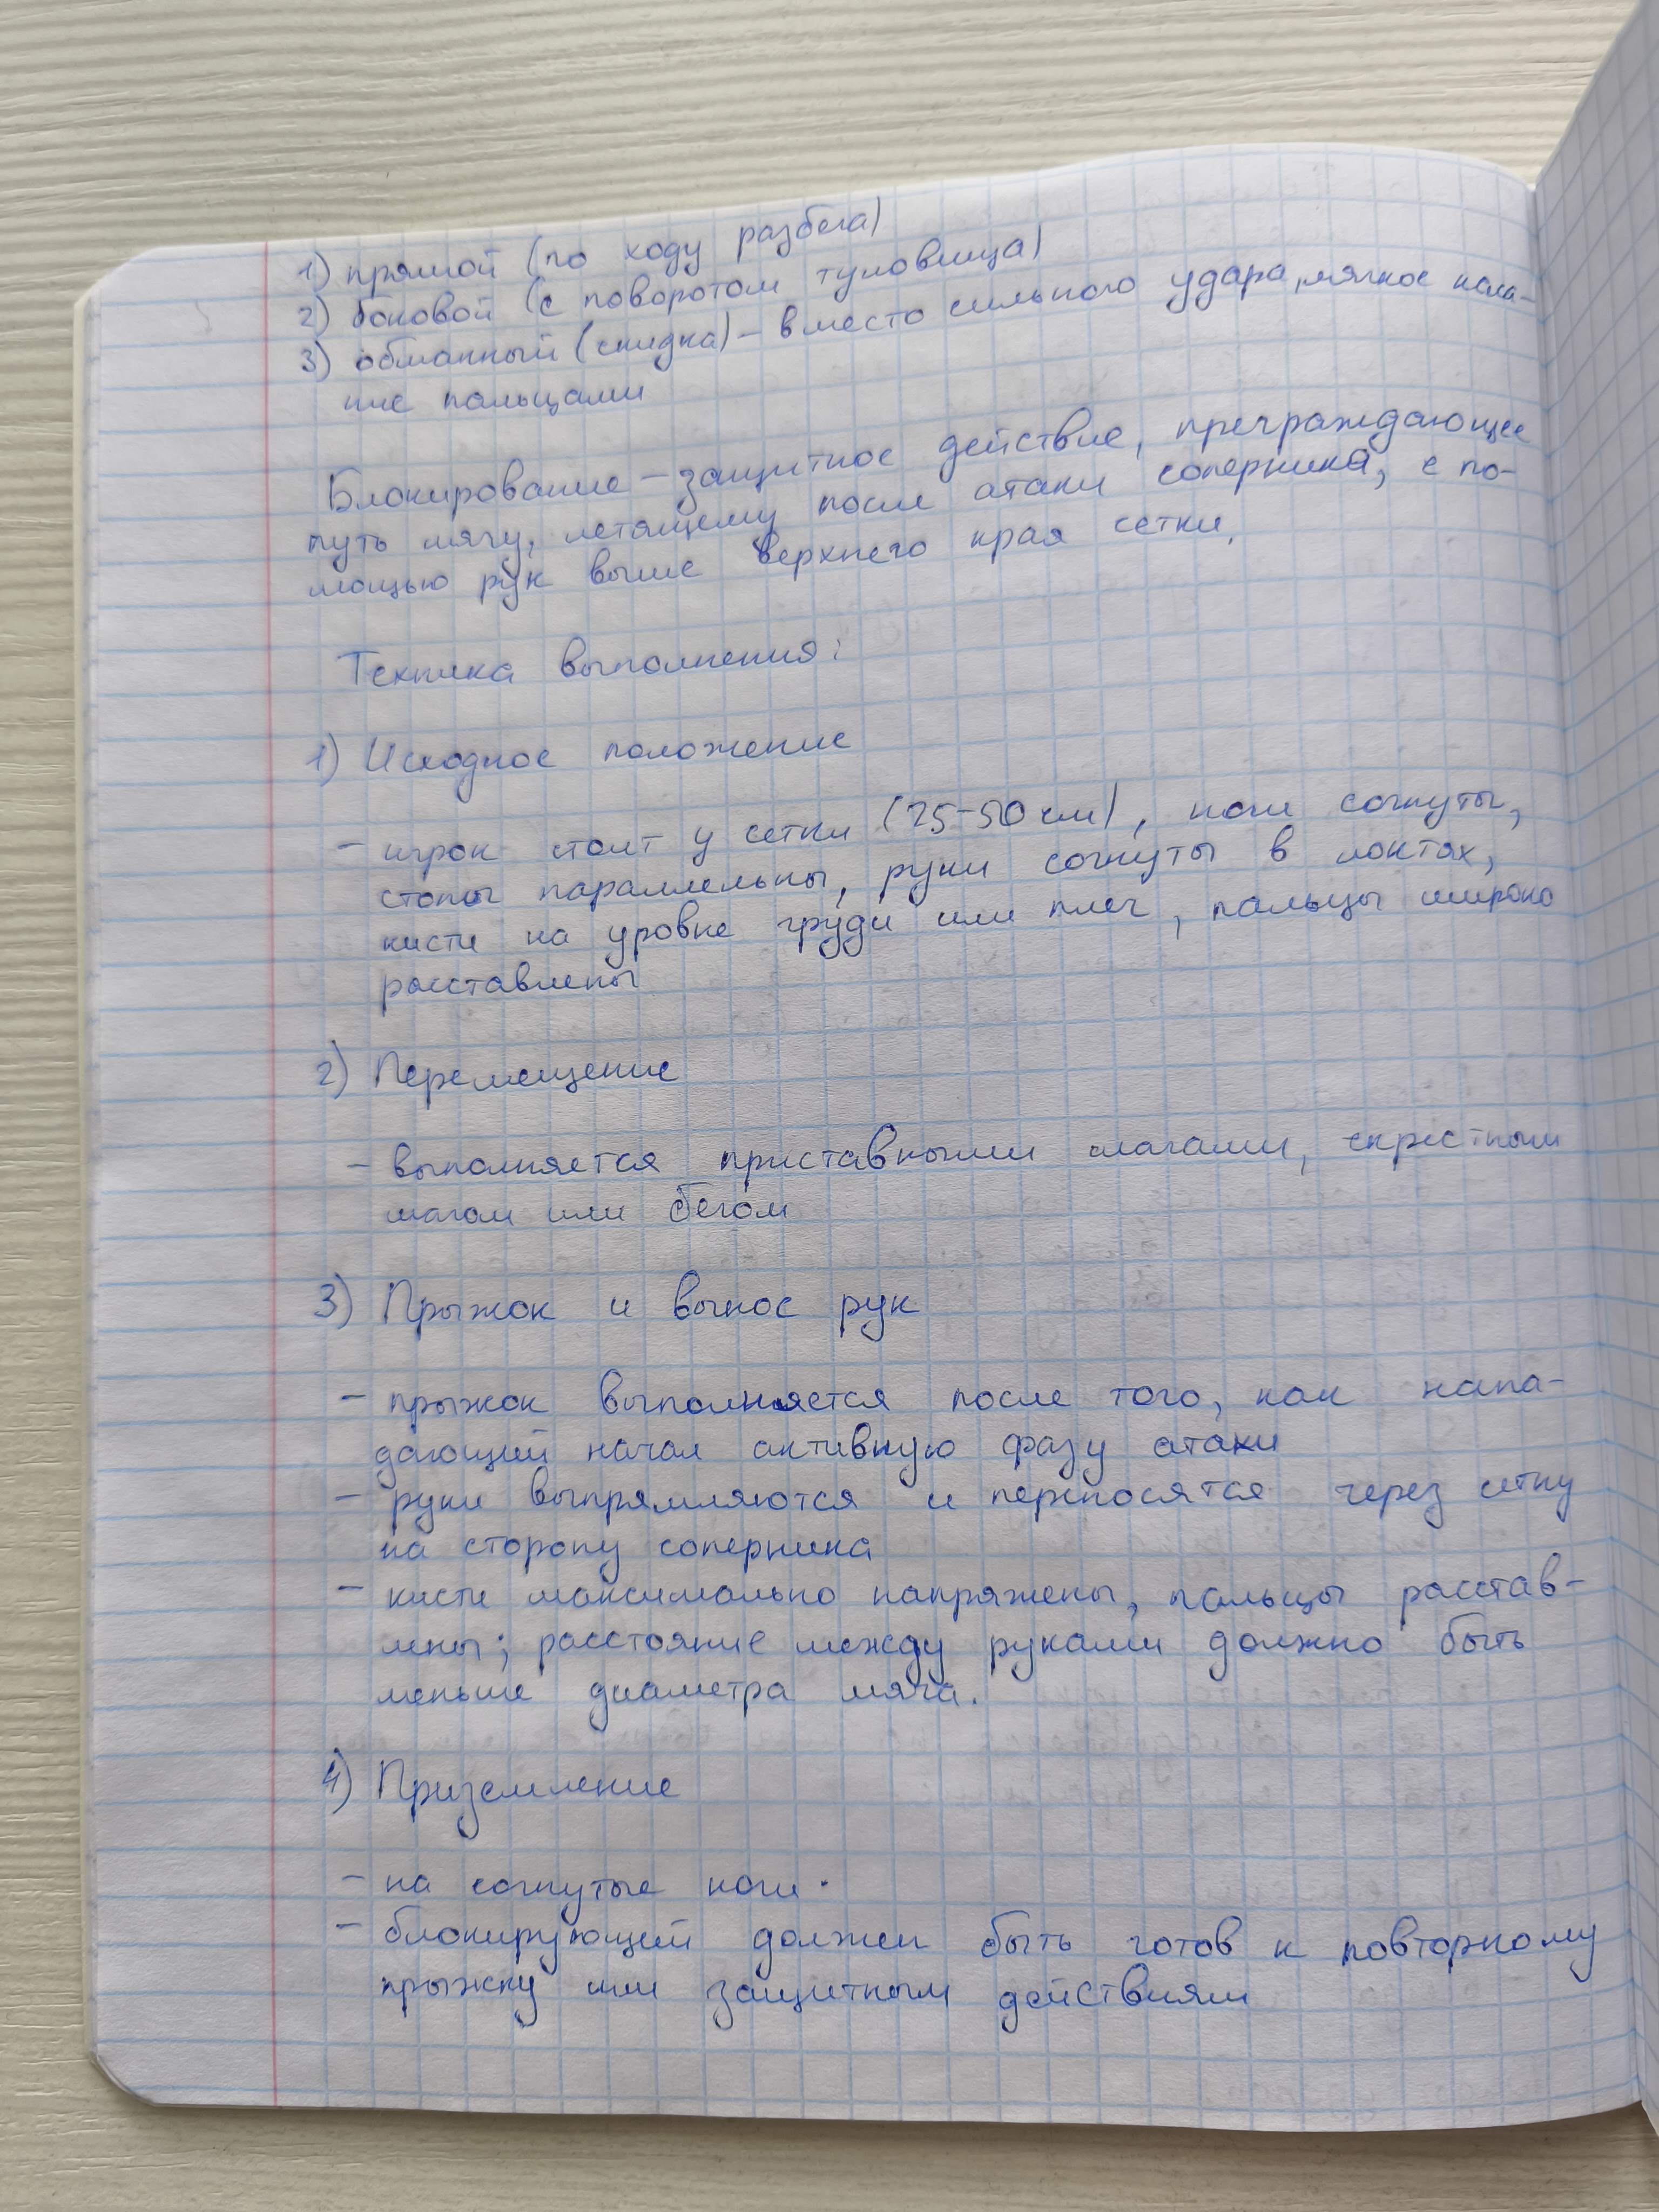 1) прямой (по ходу разбега)
2) боковой (с поворотом туловища)
3) обманный (скидка) – вместо сильного удара, мягкое каса-
ние пальцами
Блокирование – защитное действие, преграждающее
путь мячу, летящему после атаки соперника, с по-
мощью рук выше верхнего края сетки.
Техника выполнения:
1) Исходное положение
– игрок стоит у сетки (25-50 см), ноги согнуты,
стопы параллельны, руки согнуты в локтях,
кисти на уровне груди или плеч, пальцы широко
расставлены
2) Перемещение
– выполняется приставными шагами, скрестным
шагом или бегом
3) Прыжок и вынос рук
– прыжок выполняется после того, как напа-
дающий начал активную фазу атаки
– руки выпрямляются и переносятся через сетку
на сторону соперника
– кисти максимально напряжены, пальцы расстав-
лены; расстояние между руками должно быть
меньше диаметра мяча.
4) Приземление
– на согнутые ноги.
– блокирующий должен быть готов к повторному
прыжку или защитным действиям